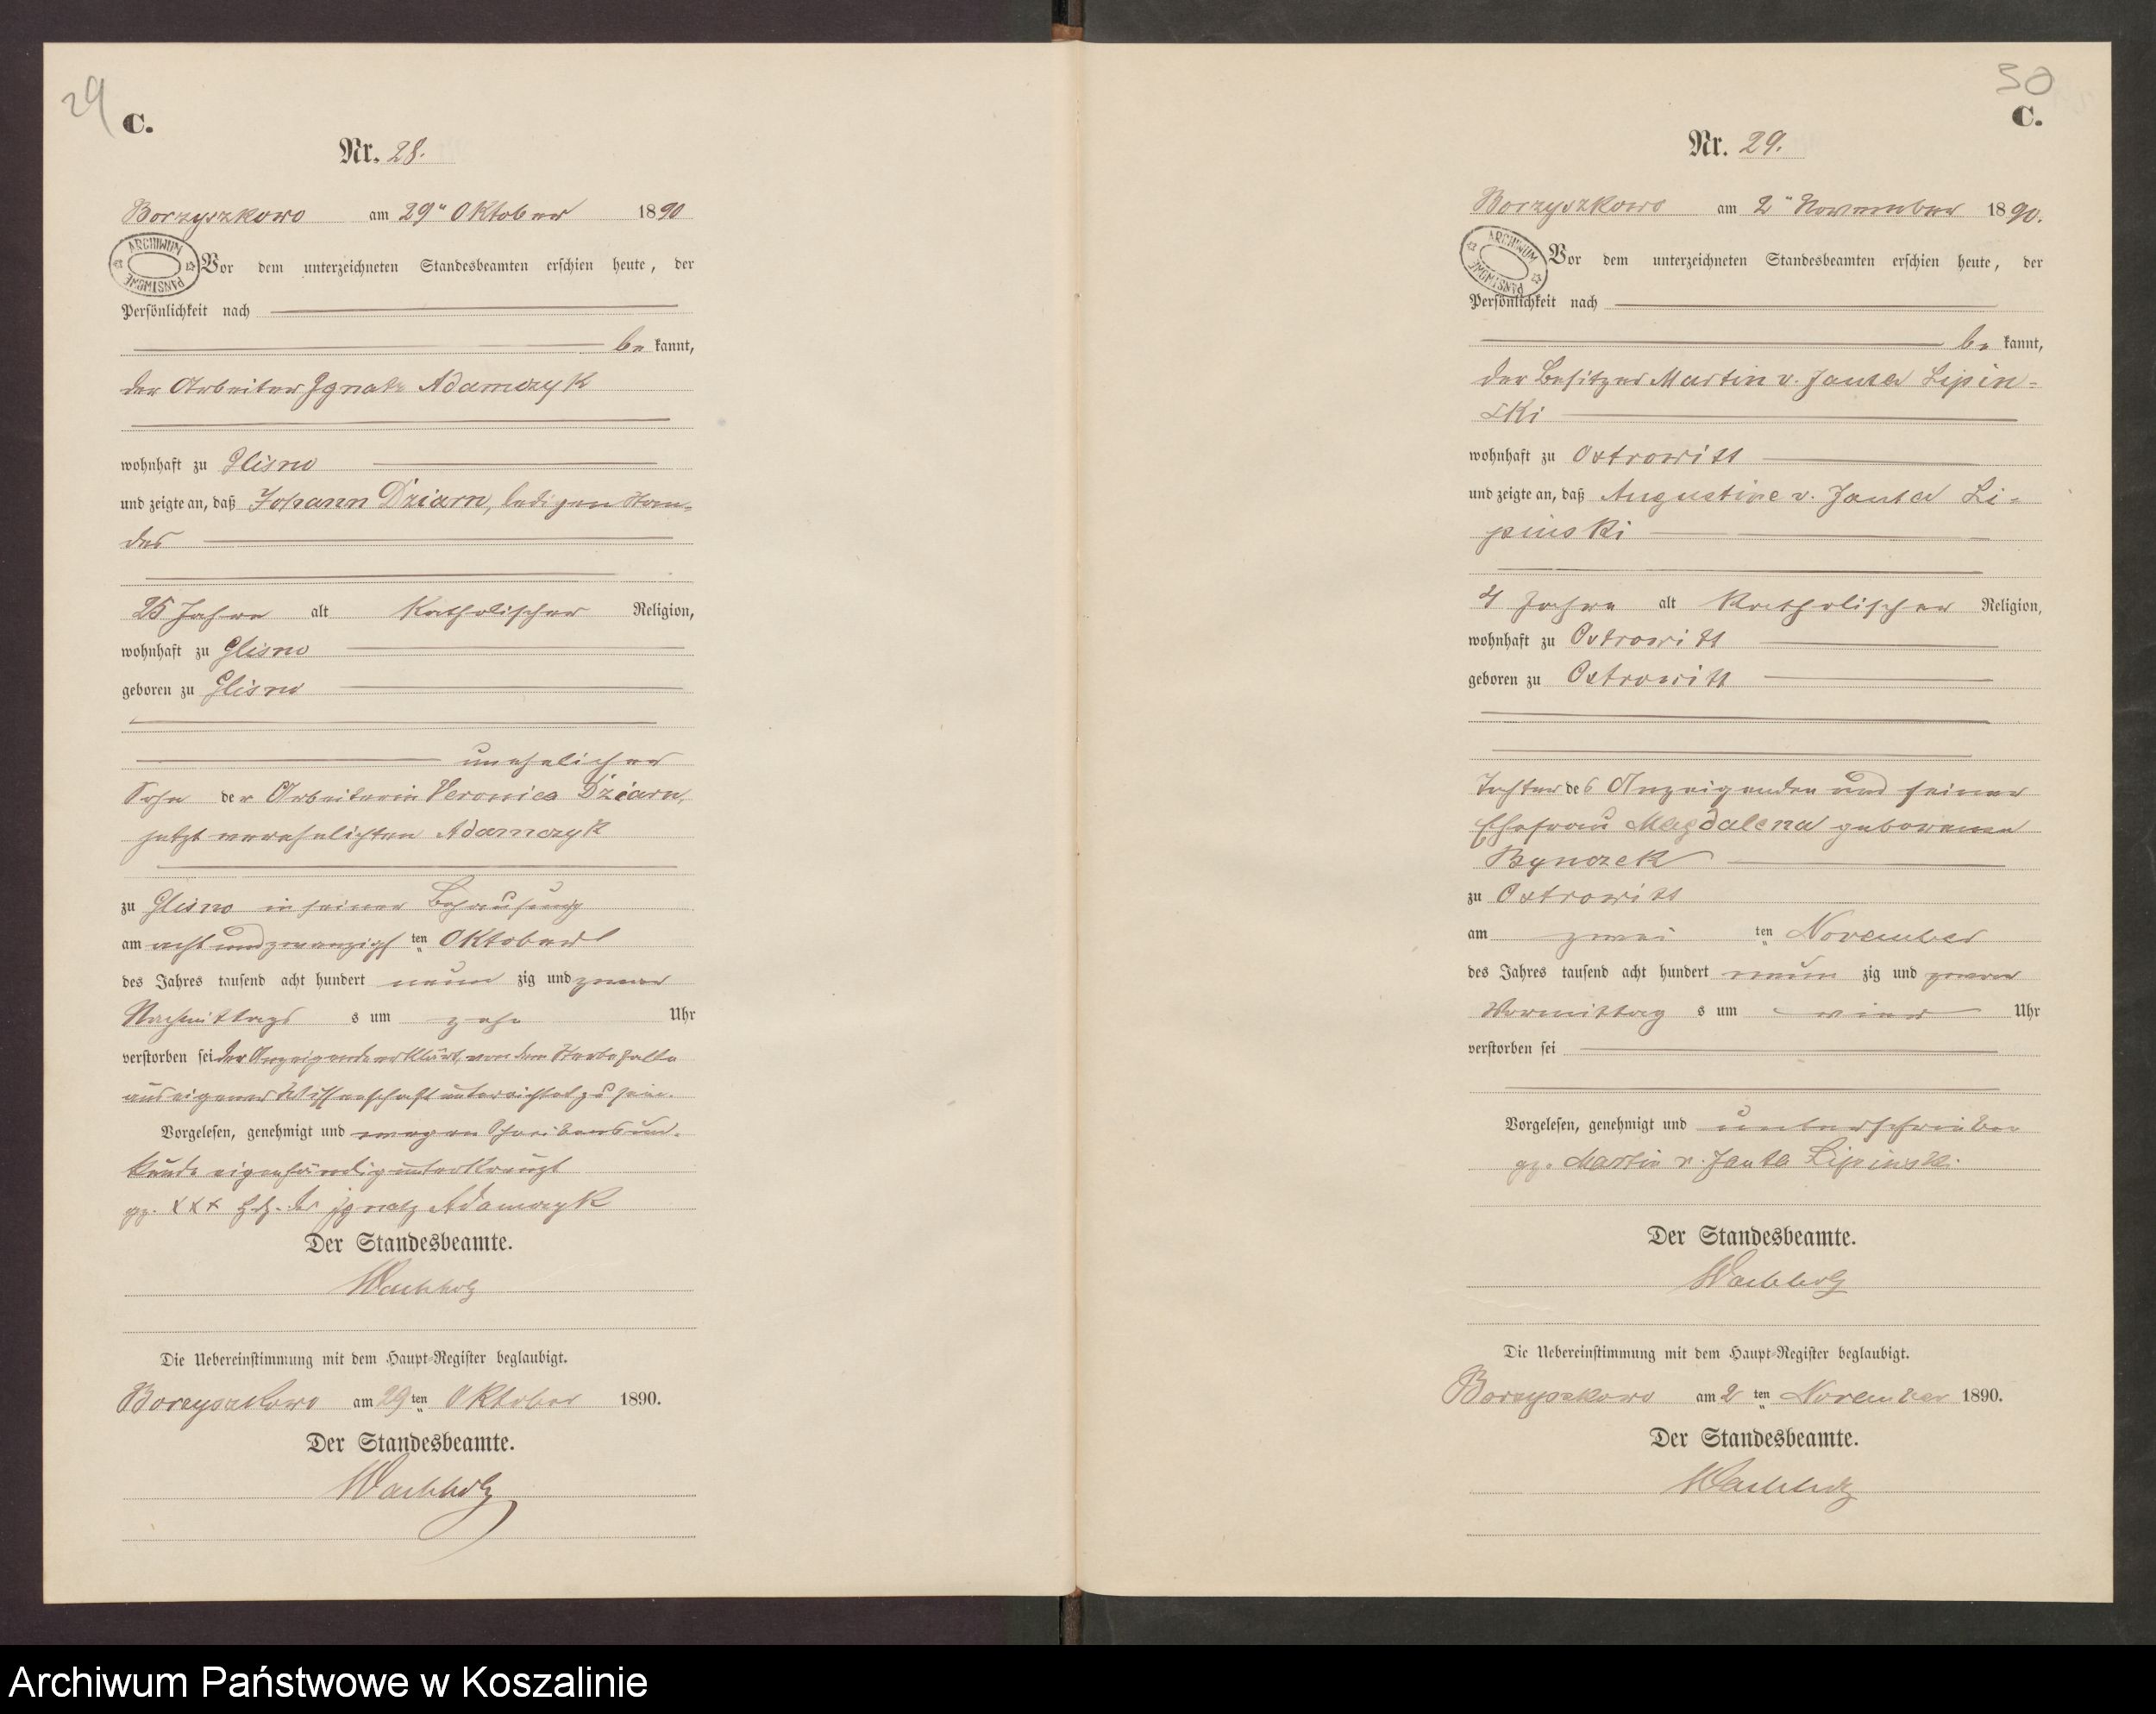 29
C.
Nr. 28.
Borzyszkowo am 29" Oktober 1890
ARCHIWUM PAŃSTWOWE
Vor dem unterzeichneten Standesbeamten erschien heute, der
Persönlichkeit nach
be kannt,
der Arbeiter Ignatz Adamczyk
wohnhaft zu Glisno
und zeigte an, daß Johann Dziarn, ledigen Stan-
des
25 Jahre alt katholischer Religion,
wohnhaft zu Glisno
geboren zu Glisno
unehelicher
Sohn der Arbeiterin Veronica Dziarn,
jetzt verehelichten Adamczyk
zu Glisno in seiner Behausung
am acht und zwanzigsten Oktober
des Jahres tausend acht hundert neun zig und zwar
Nachmittags s um zehn Uhr
verstorben sei der Anzeigende erklärt, von dem Sterbefalle
aus eigener Wissenschaft unterrichtet zu sein.
Vorgelesen, genehmigt und wegen Schreibensun-
kunde eigenhändig unterkreuzt
gz. XXX Hdz. des Ignatz Adamczyk
Der Standesbeamte.
Wachholz
Die Uebereinstimmung mit dem Haupt-Register beglaubigt.
Borzyszkowo am 29 ten Oktober 1890.
Der Standesbeamte.
Wachholz
30
C.
Nr. 29.
Borzyszkowo am 2" November 1890.
ARCHIWUM PAŃSTWOWE
Vor dem unterzeichneten Standesbeamten erschien heute, der
Persönlichkeit nach
be kannt,
der Besitzer Martin v. Janta Lipin-
ski
wohnhaft zu Ostrowitt
und zeigte an, daß Augustine v. Janta Li-
pinski
4 Jahre alt katholischer Religion,
wohnhaft zu Ostrowitt
geboren zu Ostrowitt
Tochter des Anzeigenden und seiner
Ehefrau Magdalena geborenen
Bynczek
zu Ostrowitt
am zwei ten November
des Jahres tausend acht hundert neun zig und zwar
Vormittag s um vier Uhr
verstorben sei
Vorgelesen, genehmigt und unterschrieben
gz. Martin v. Janta Lipinski.
Der Standesbeamte.
Wachholz
Die Uebereinstimmung mit dem Haupt-Register beglaubigt.
Borzyszkowo am 2 ten November 1890.
Der Standesbeamte.
Wachholz
Archiwum Państwowe w Koszalinie